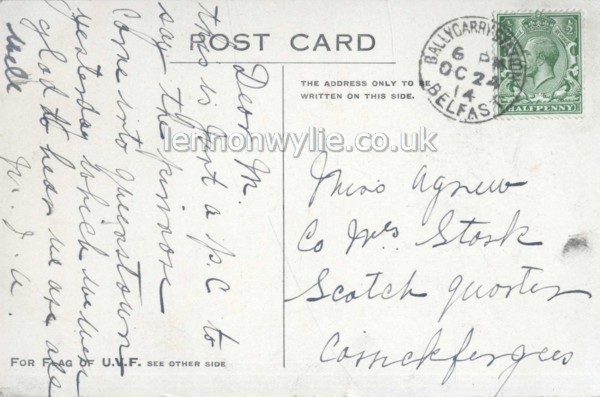 POST CARD
THE ADDRESS ONLY TO BE
WRITTEN ON THIS SIDE.
BALLYCARRY STATION
6 PM
OC 24
14
BELFAST
HALFPENNY
lennonwylie.co.uk
Dear M.
this is Just a p.C to
say the
Come into Queenstown
yesterday which we were
glad to hear we are all
well
M. J. A.
Miss Agnew
Co Mrs. Stork
Scotch Quarter
Carrickfergus
FOR FLAG OF U.V.F. SEE OTHER SIDE